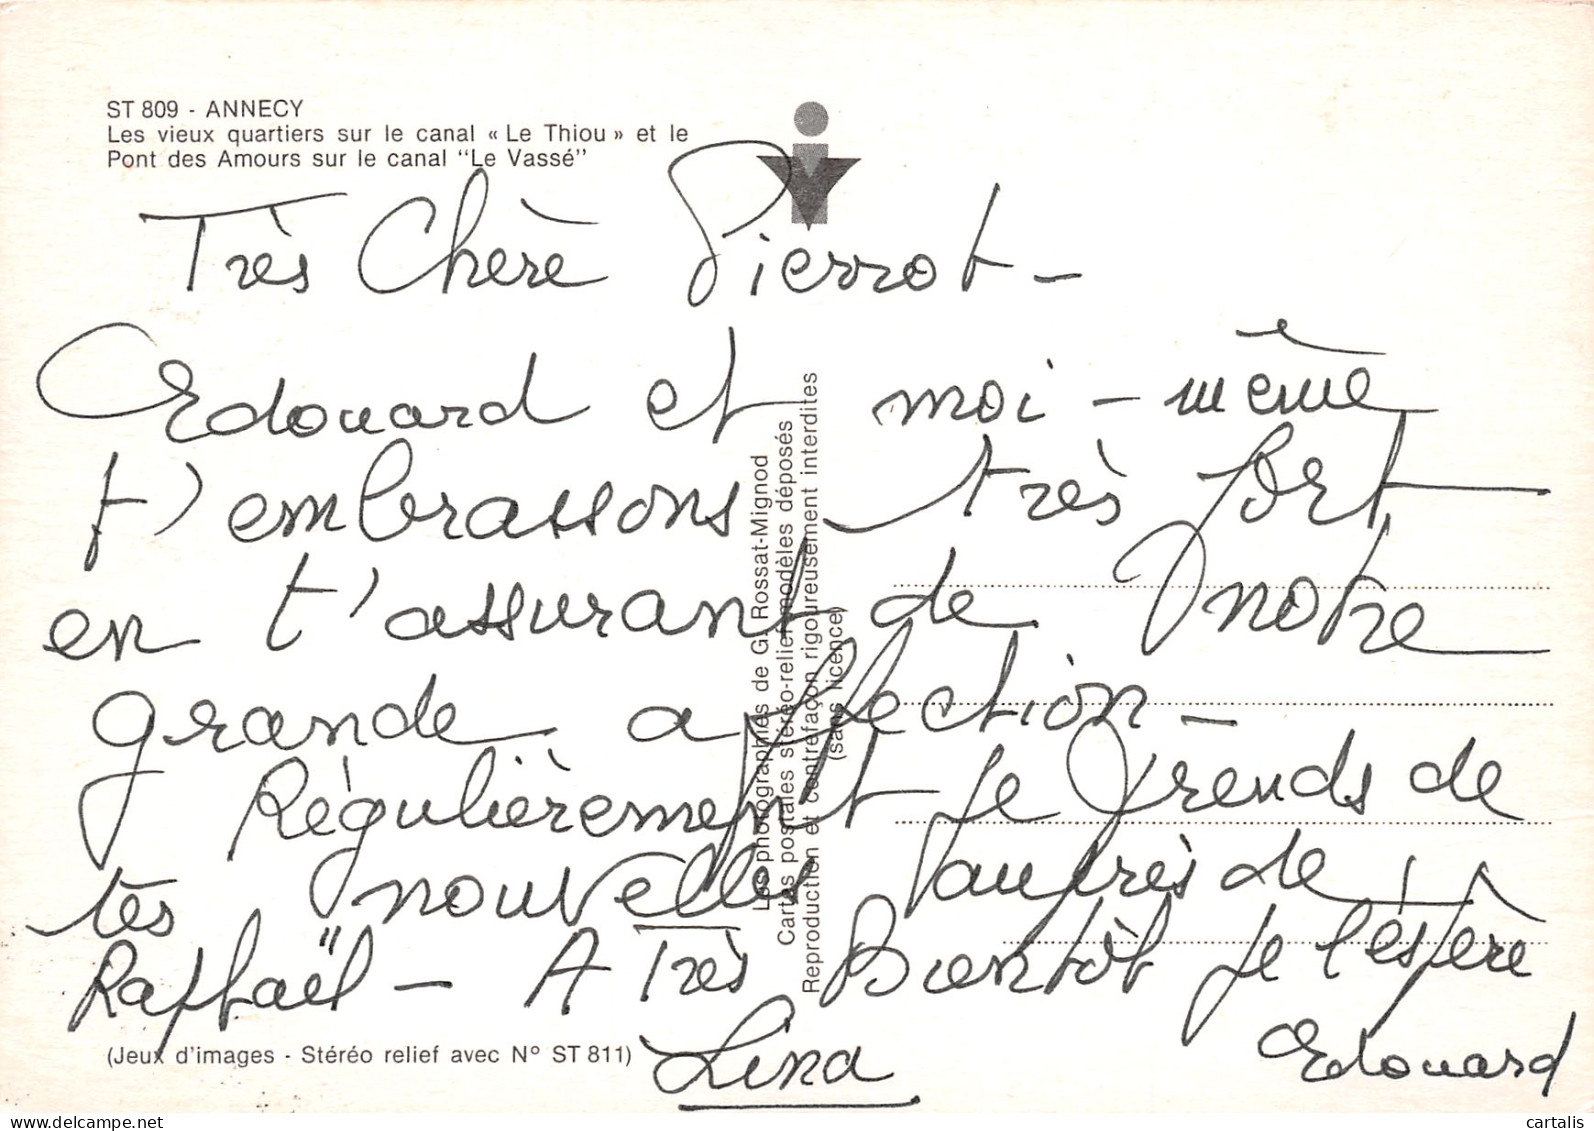 ST 809 - ANNECY
Les vieux quartiers sur le canal « Le Thiou » et le
Pont des Amours sur le canal "Le Vassé"
Très Chère Pierrot -
Edouard et moi - même
t'embrassons très fort
en t'assurant de notre
grande affection -
Régulièrement je prends de
tes nouvelles auprès de
Raphaël - A Très Bientôt je l'espère
Lina
Edouard
Les photographies de G. Rossat-Mignod
Cartes postales stéréo-relief modèles déposés
Reproduction et contrefaçon rigoureusement interdites
(sans licence)
(Jeux d'images - Stéréo relief avec N° ST 811)
delcampe.net
cartalis